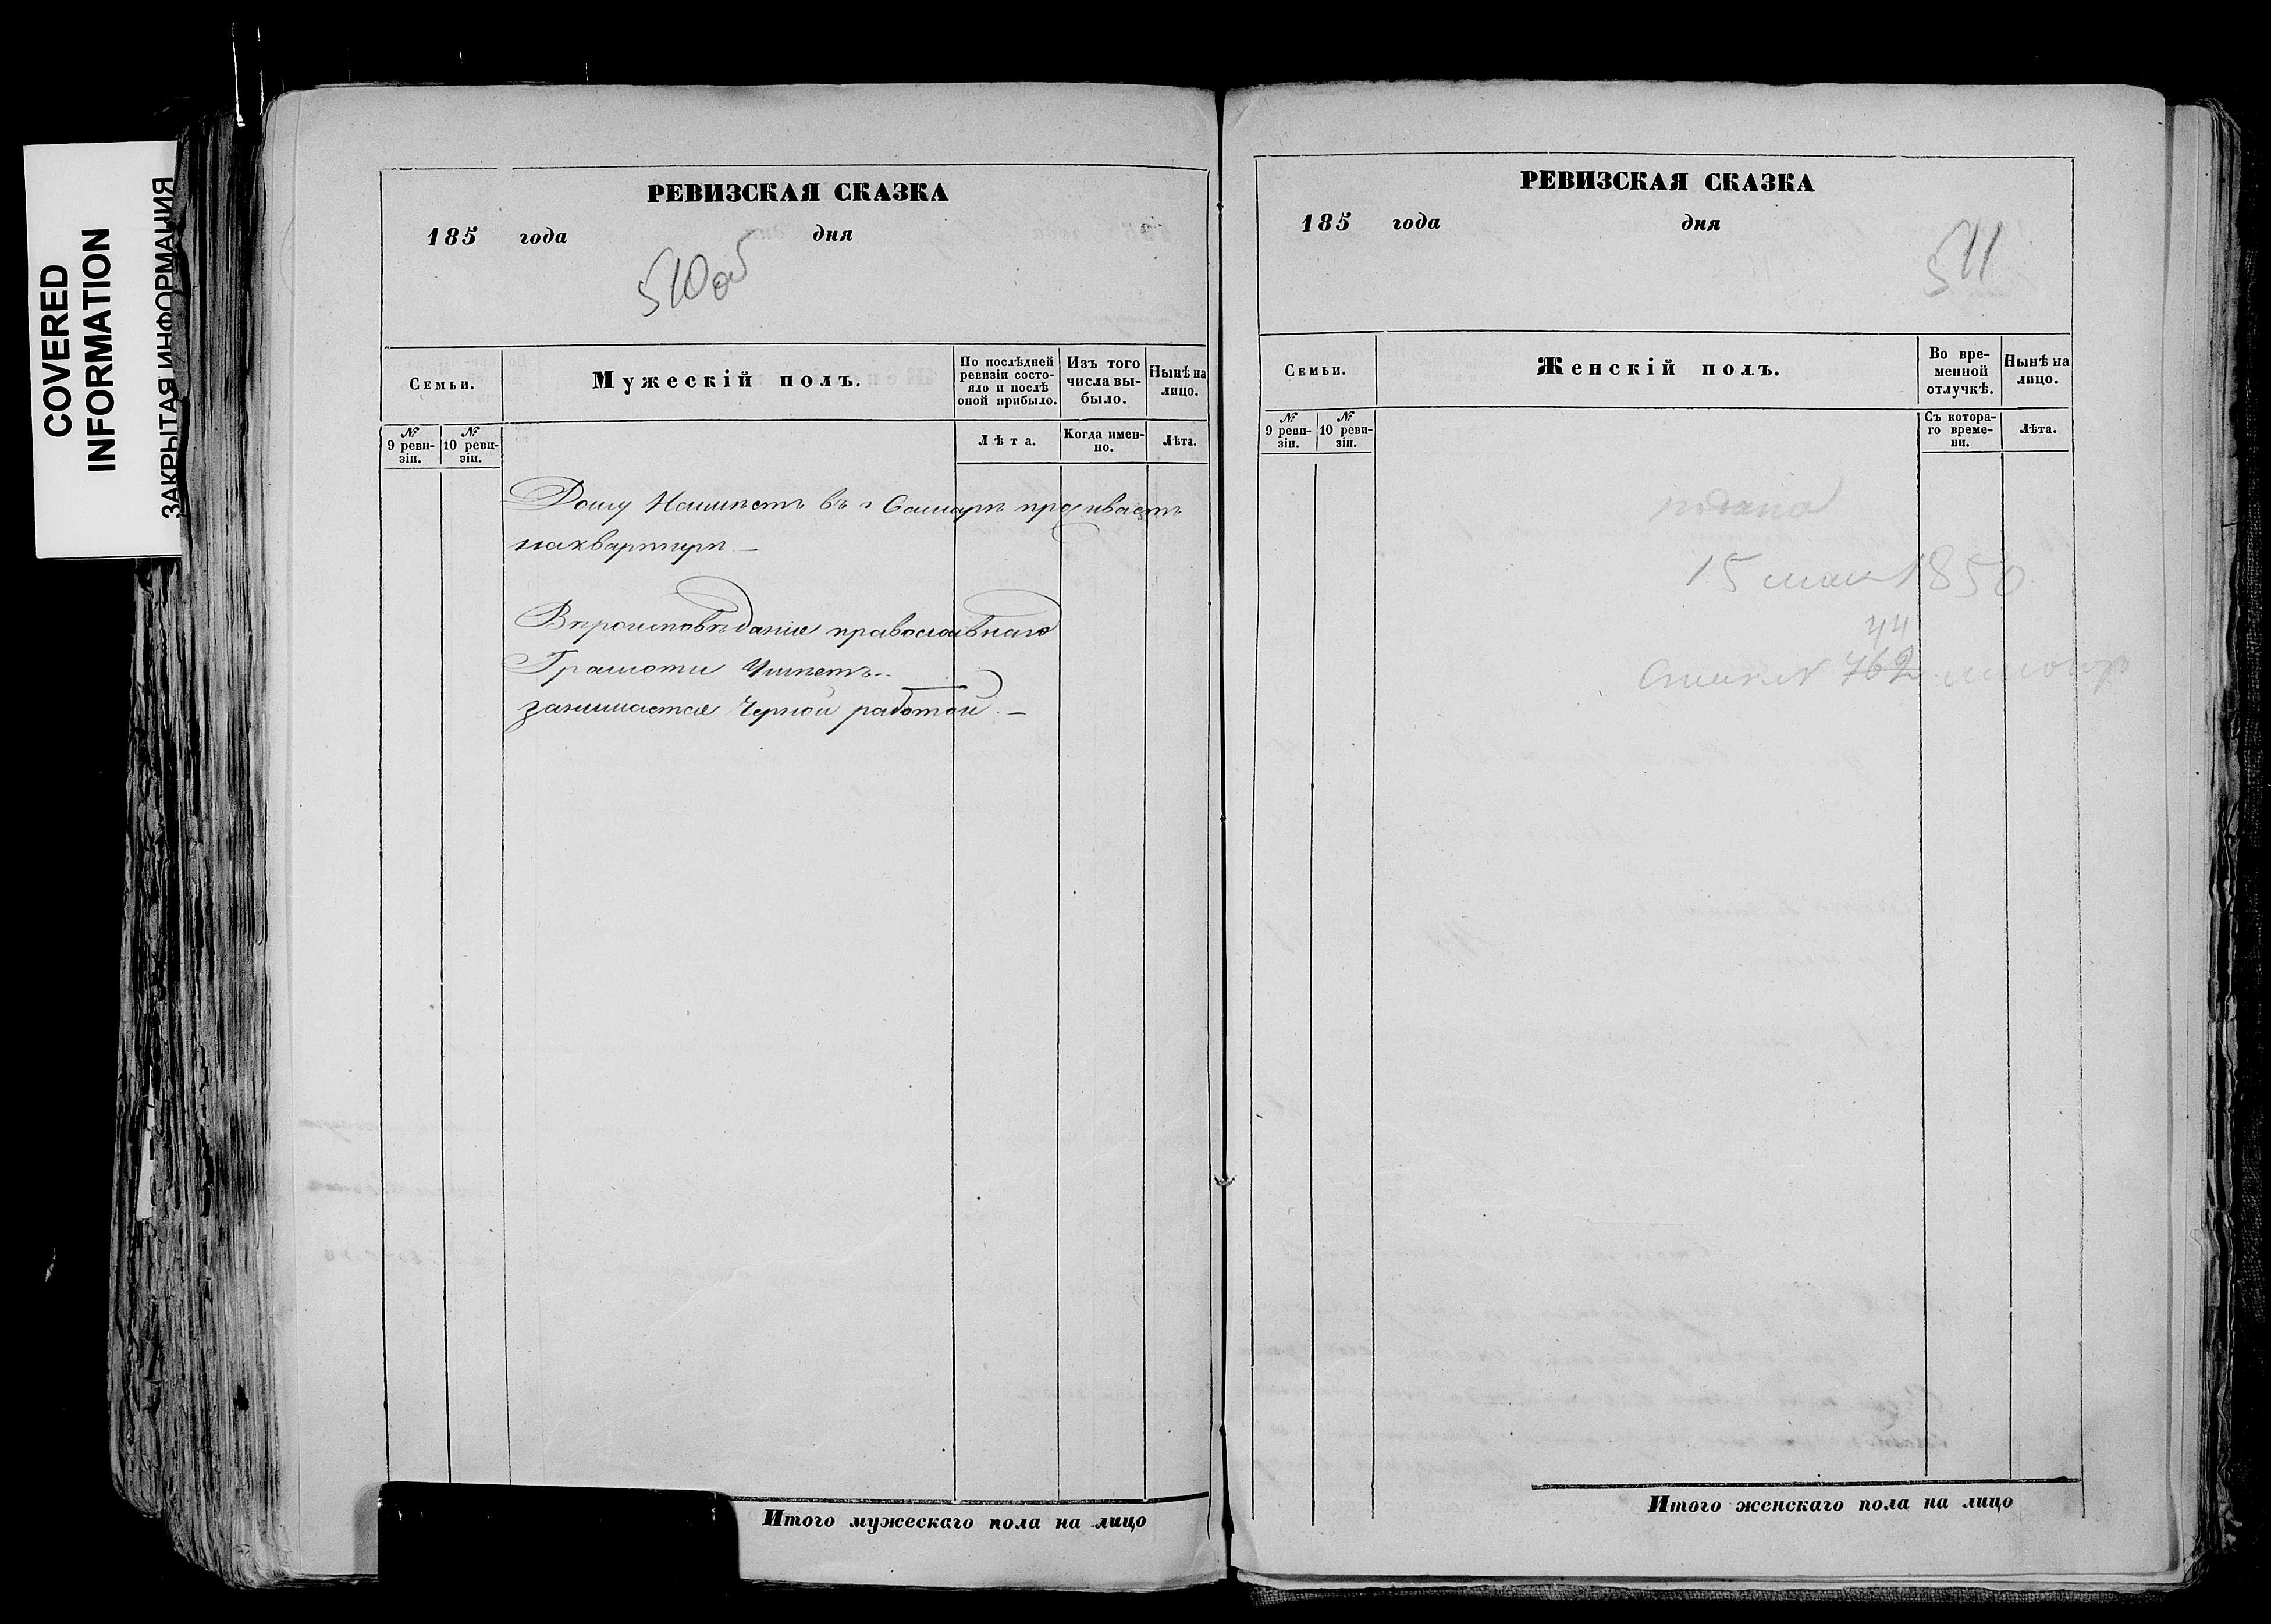 COVERED
INFORMATION
ЗАКРЫТАЯ ИНФОРМАЦИЯ
РЕВИЗСКАЯ СКАЗКА
185 года дня
510об
Семьи.
Мужескій полъ.
По послѣдней ревизіи состояло и послѣ оной прибыло.
Изъ того числа выбыло.
Нынѣ на лицо.
№ 9 ревизіи.
№ 10 ревизіи.
Лѣта.
Когда именно.
Лѣта.
Дому Неимѣетъ въ г Самарѣ проживаетъ
наквартирѣ. —
Вѣроисповѣданія православнаго
Грамоти Умѣетъ..
занимается Черной работой. —
Итого мужескаго пола на лицо
РЕВИЗСКАЯ СКАЗКА
185 года дня
511
Семьи.
Женскій полъ.
Во временной отлучкѣ.
Нынѣ на лицо.
№ 9 ревизіи.
№ 10 ревизіи.
Съ котораго времени.
Лѣта.
подана
15 мая 1850
44
762
Итого женскаго пола на лицо